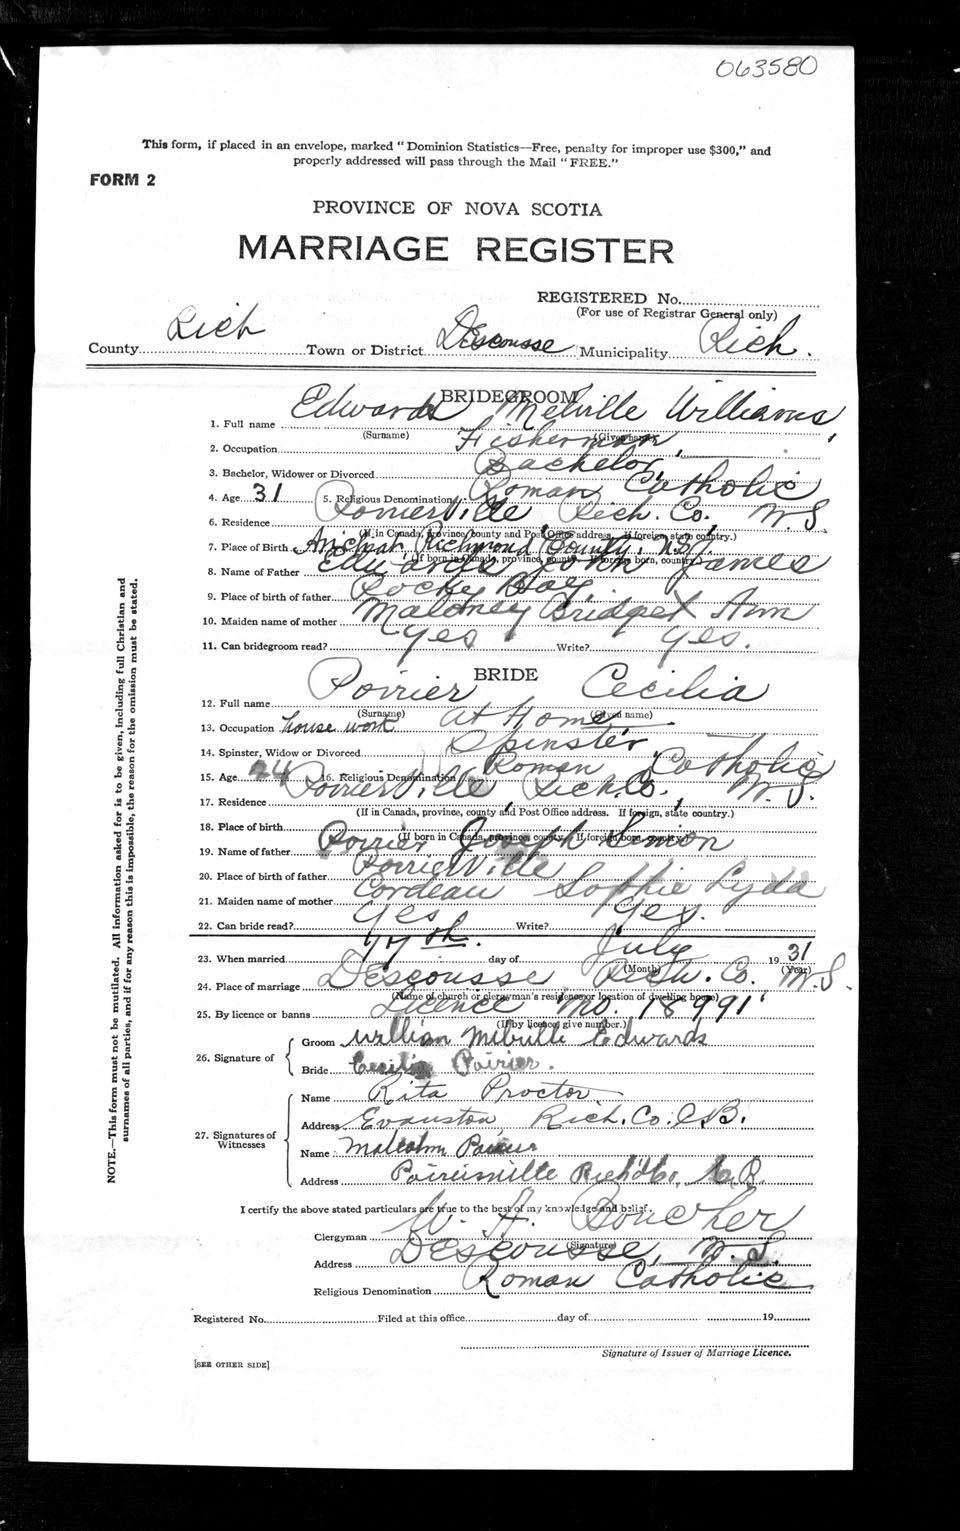 063580
This form, if placed in an envelope, marked "Dominion Statistics—Free, penalty for improper use $300," and
properly addressed will pass through the Mail "FREE."
FORM 2
PROVINCE OF NOVA SCOTIA
MARRIAGE REGISTER
REGISTERED No.
(For use of Registrar General only)
County Rich Town or District Descousse Municipality Rich.
BRIDEGROOM
1. Full name Edwards Melville Williams
(Surname) (Given name)
2. Occupation Fisherman
3. Bachelor, Widower or Divorced Bachelor
4. Age 31 5. Religious Denomination Roman Catholic
6. Residence Poirierville Rich. Co. N.S.
(If in Canada, province, county and Post Office address. If foreign, state country.)
7. Place of Birth Arichat Richmond County, N.S.
(If born in Canada, province, county. If foreign born, country.)
8. Name of Father Edwards John James
9. Place of birth of father Rocky Bay
10. Maiden name of mother Maloney Bridget Ann
11. Can bridegroom read? Yes Write? Yes.
BRIDE
12. Full name Poirier Cecilia
(Surname) (Given name)
13. Occupation house work At Home
14. Spinster, Widow or Divorced Spinster
15. Age 24 16. Religious Denomination Roman Catholic
17. Residence Poirierville Rich. Co., N.S.
(If in Canada, province, county and Post Office address. If foreign, state country.)
18. Place of birth
(If born in Canada, province, county. If foreign born, country.)
19. Name of father Poirier, Joseph Simon
20. Place of birth of father Poirierville
21. Maiden name of mother Cordeau Sophie Lyda
22. Can bride read? Yes Write? Yes.
23. When married day of July 1931
(Month) (Year)
24. Place of marriage Descousse Rich. Co. N.S.
(Name of church or clergyman's residence or location of dwelling house)
25. By licence or banns Licence No. 18991
(If by licence, give number.)
26. Signature of
Groom William Melville Edwards
Bride Cecilia Poirier.
27. Signatures of Witnesses
Name Rita Proctor
Address Evanston, Rich. Co. C.B.
Name Malcolm Poirier
Address Poirierville Rich Co., C.B.
I certify the above stated particulars are true to the best of my knowledge and belief.
Clergyman W. A. Boucher
(Signature)
Address Descousse, N.S.
Religious Denomination Roman Catholic
Registered No. Filed at this office day of 19
Signature of Issuer of Marriage Licence.
[SEE OTHER SIDE]
NOTE.—This form must not be mutilated. All information asked for is to be given, including full Christian and
surnames of all parties, and if for any reason this is impossible, the reason for the omission must be stated.